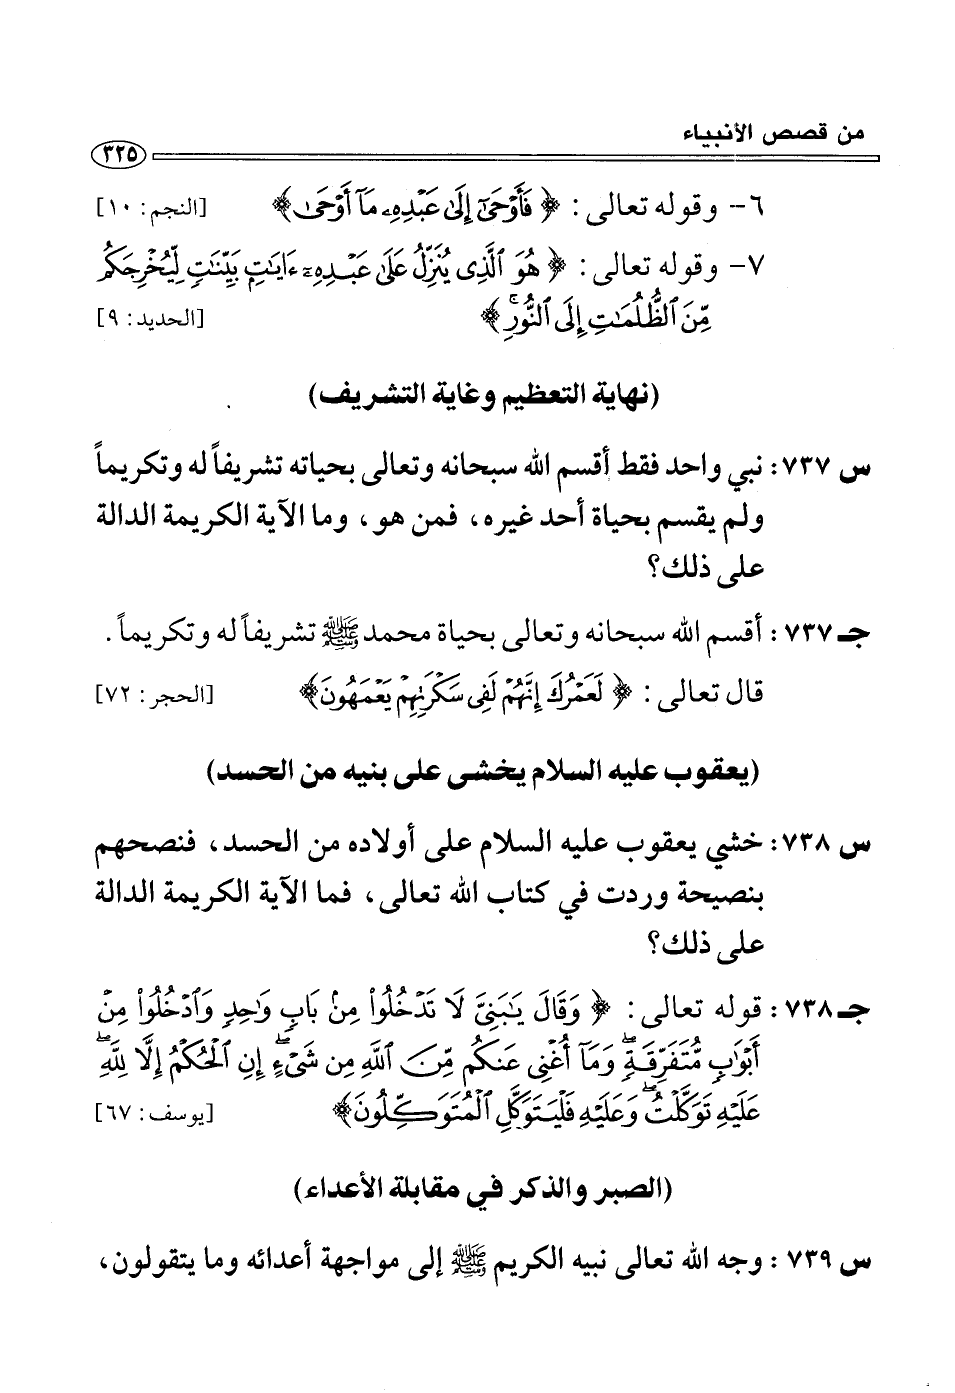 من قصص الأنبياء
٣٢٥
٦- وقوله تعالى: ﴿فَأَوْحَىٰٓ إِلَىٰ عَبْدِهِۦ مَآ أَوْحَىٰ﴾ [النجم: ١٠]
٧- وقوله تعالى: ﴿هُوَ ٱلَّذِى يُنَزِّلُ عَلَىٰ عَبْدِهِۦٓ ءَايَٰتٍۭ بَيِّنَٰتٍ لِّيُخْرِجَكُم
مِّنَ ٱلظُّلُمَٰتِ إِلَى ٱلنُّورِۚ﴾ [الحديد: ٩]
(نهاية التعظيم وغاية التشريف)
س ٧٣٧: نبي واحد فقط أقسم الله سبحانه وتعالى بحياته تشريفاً له وتكريماً
ولم يقسم بحياة أحد غيره، فمن هو، وما الآية الكريمة الدالة
على ذلك؟
جـ ٧٣٧: أقسم الله سبحانه وتعالى بحياة محمد ﷺ تشريفاً له وتكريماً.
قال تعالى: ﴿لَعَمْرُكَ إِنَّهُمْ لَفِى سَكْرَتِهِمْ يَعْمَهُونَ﴾ [الحجر: ٧٢]
(يعقوب عليه السلام يخشى على بنيه من الحسد)
س ٧٣٨: خشي يعقوب عليه السلام على أولاده من الحسد، فنصحهم
بنصيحة وردت في كتاب الله تعالى، فما الآية الكريمة الدالة
على ذلك؟
جـ ٧٣٨: قوله تعالى: ﴿وَقَالَ يَٰبَنِىَّ لَا تَدْخُلُوا۟ مِنۢ بَابٍ وَٰحِدٍ وَٱدْخُلُوا۟ مِنْ
أَبْوَٰبٍ مُّتَفَرِّقَةٍۖ وَمَآ أُغْنِى عَنكُم مِّنَ ٱللَّهِ مِن شَىْءٍۖ إِنِ ٱلْحُكْمُ إِلَّا لِلَّهِۖ
عَلَيْهِ تَوَكَّلْتُۖ وَعَلَيْهِ فَلْيَتَوَكَّلِ ٱلْمُتَوَكِّلُونَ﴾ [يوسف: ٦٧]
(الصبر والذكر في مقابلة الأعداء)
س ٧٣٩: وجه الله تعالى نبيه الكريم ﷺ إلى مواجهة أعدائه وما يتقولون،